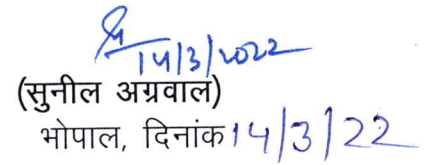 14/3/2022
(सुनील अग्रवाल)
भोपाल, दिनांक 14/3/22